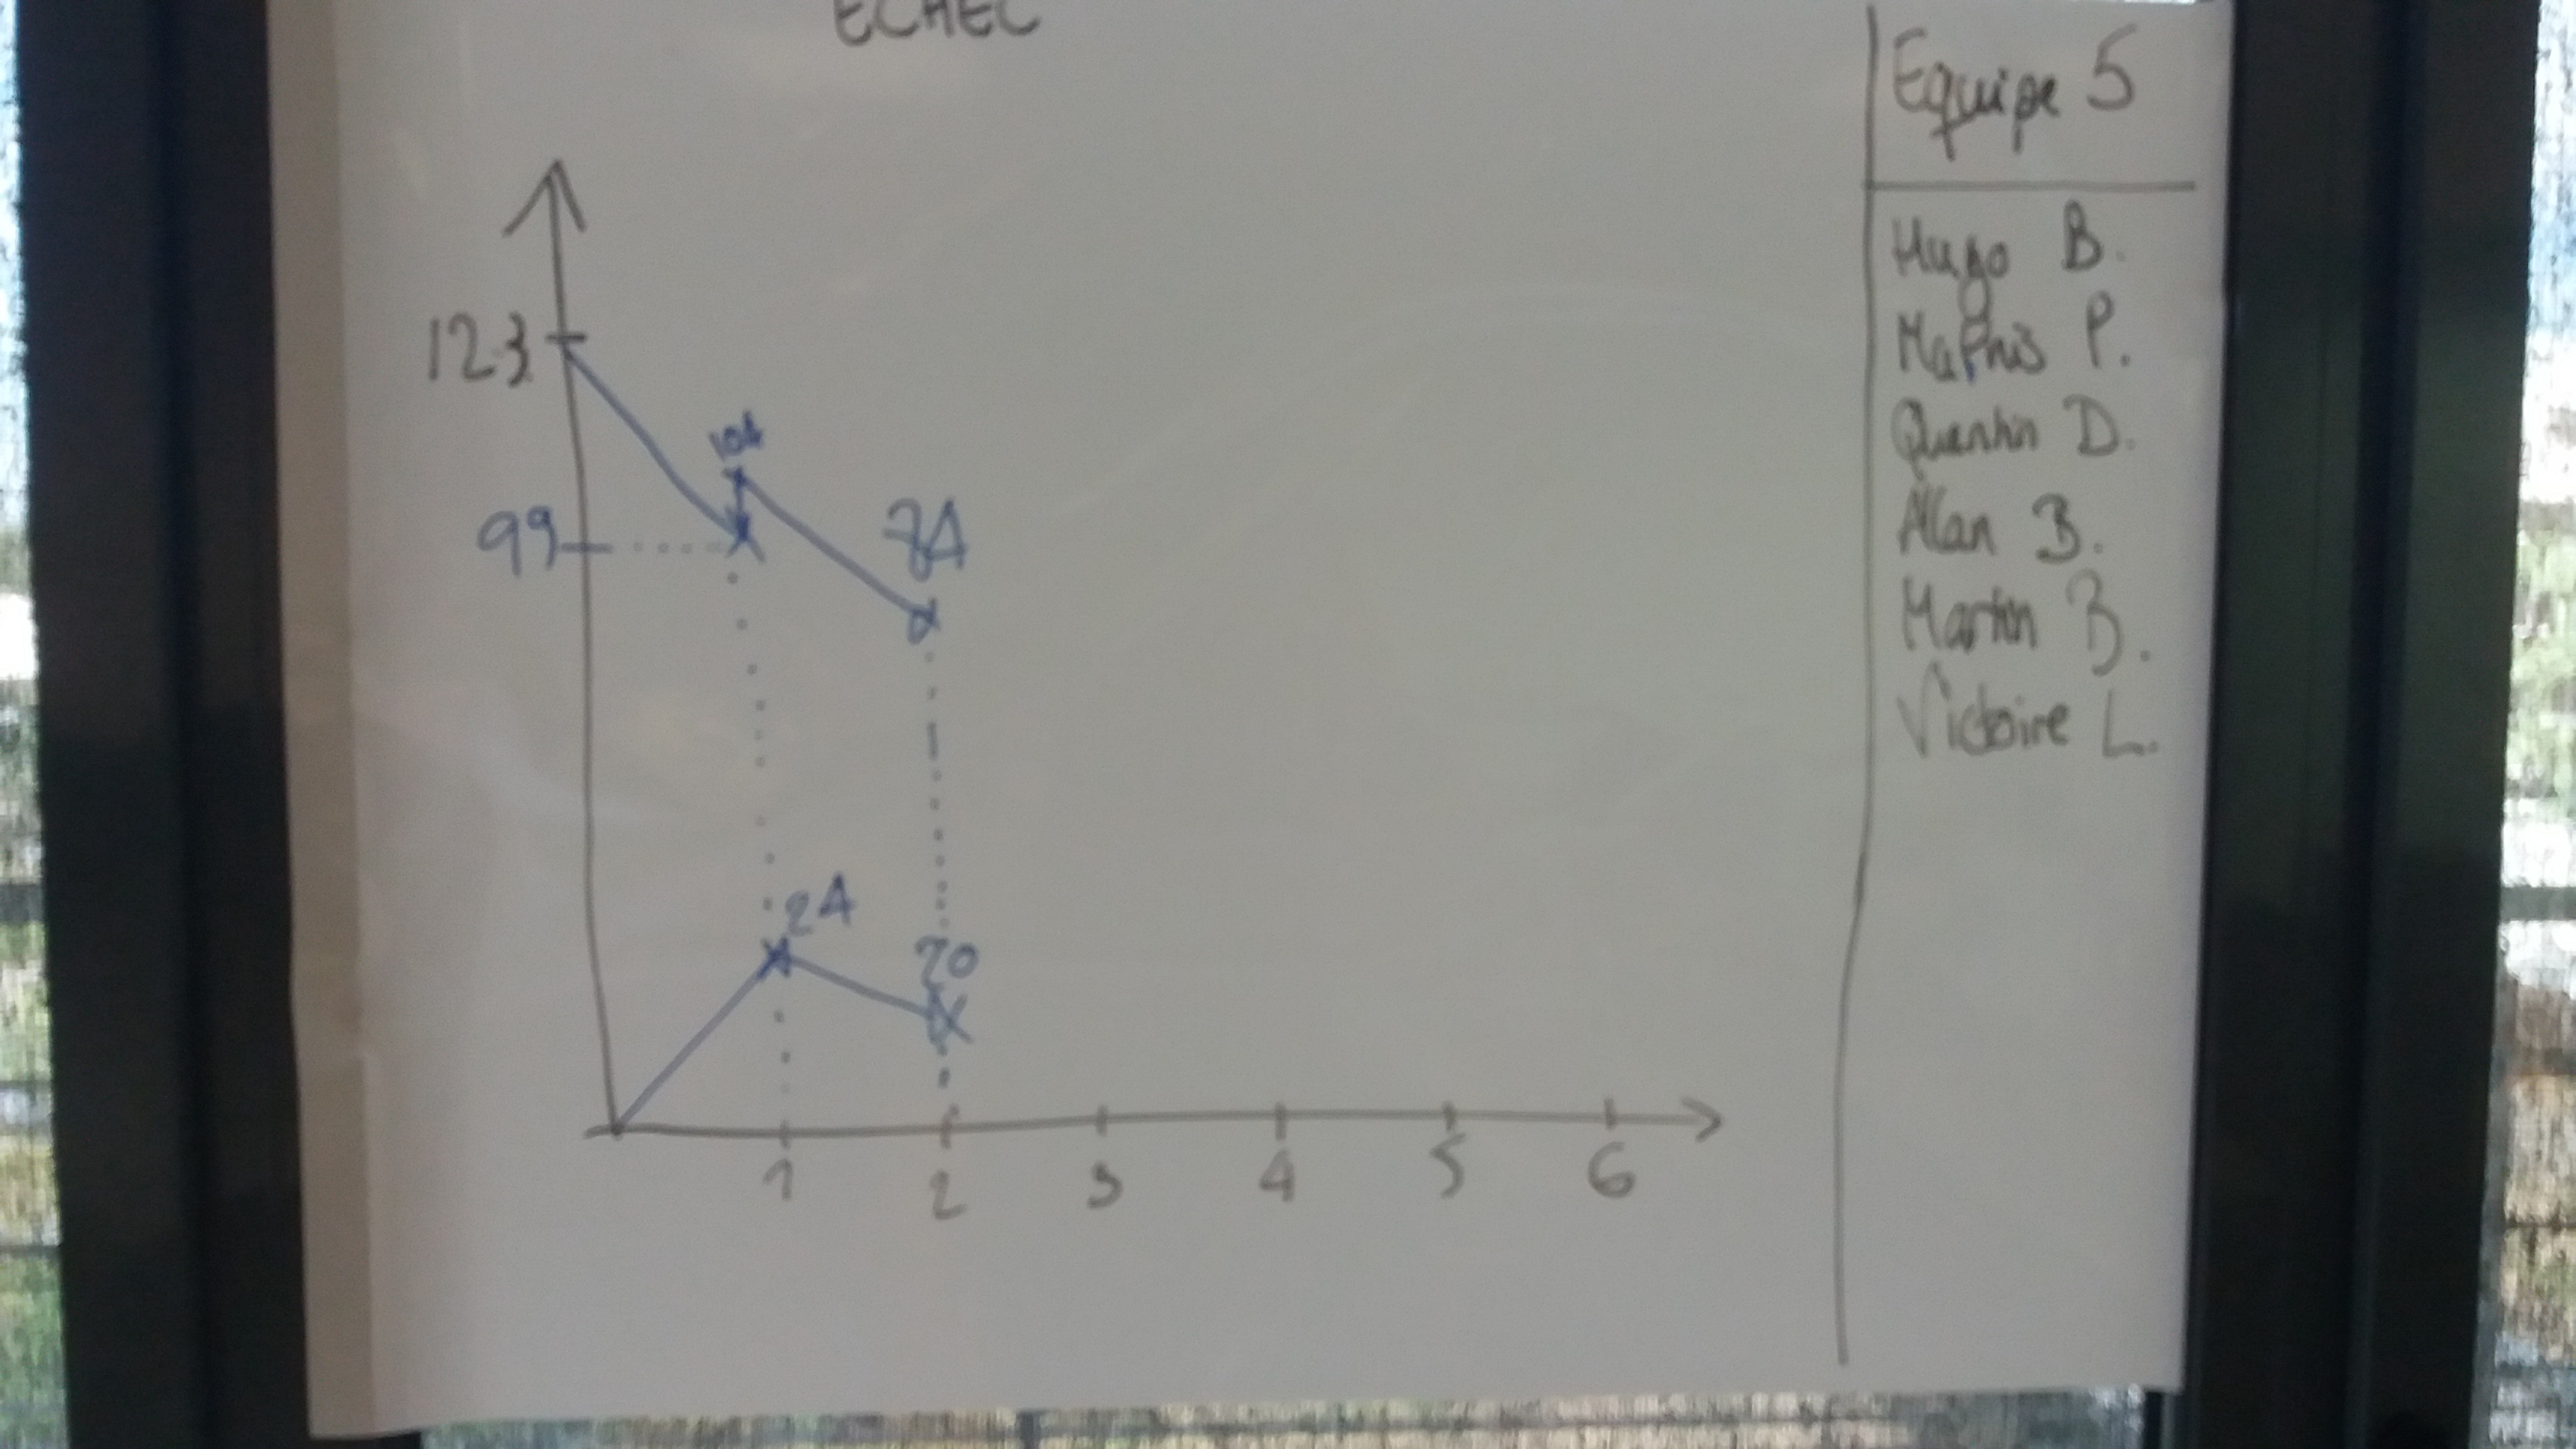 ECHEC
123
104
99
84
24
20
1 2 3 4 5 6
Equipe 5
Hugo B.
Mathis P.
Quentin D.
Allan B.
Martin B.
Victoire L.